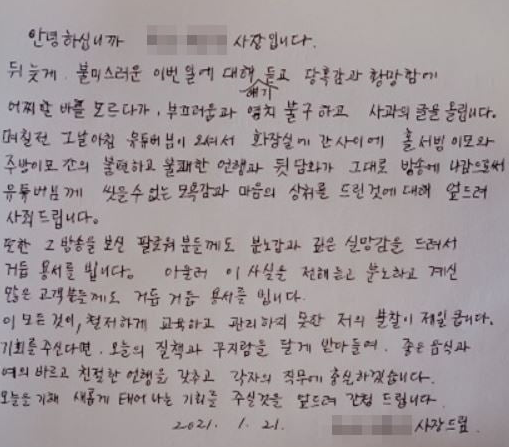 안녕하십니까 사장입니다.
뒤늦게. 불미스러운 이번 일에 대해 얘기 듣고 당혹감과 황망함에
어찌할 바를 모르다가, 부끄러움과 염치 불구하고 사과의 글을 올립니다.
며칠전 그날아침 유튜버님이 오셔서 화장실에 간사이에 홀서빙 이모와
주방이모 간의 불편하고 불쾌한 언행과 뒷담화가 그대로 방송에 나감으로써
유튜버님께 씻을수 없는 모욕감과 마음의 상처를 드린것에 대해 엎드려
사죄드립니다.
또한 그 방송을 보신 팔로워분들께도 분노감과 깊은 실망감을 드려서
거듭 용서를 빕니다. 아울러 이 사실을 전해듣고 분노하고 계신
많은 고객분들께도 거듭 거듭 용서를 빕니다.
이 모든것이, 철저하게 교육하고 관리하지 못한 저의 불찰이 제일 큽니다.
기회를 주신다면, 오늘의 질책과 꾸지람을 달게 받아들여, 좋은 음식과
예의 바르고 친절한 언행을 갖추고 각자의 직무에 충실하겠습니다.
오늘을 기해 새롭게 태어나는 기회를 주실것을 엎드려 간청 드립니다.
2021. 1. 21.
사장드림.